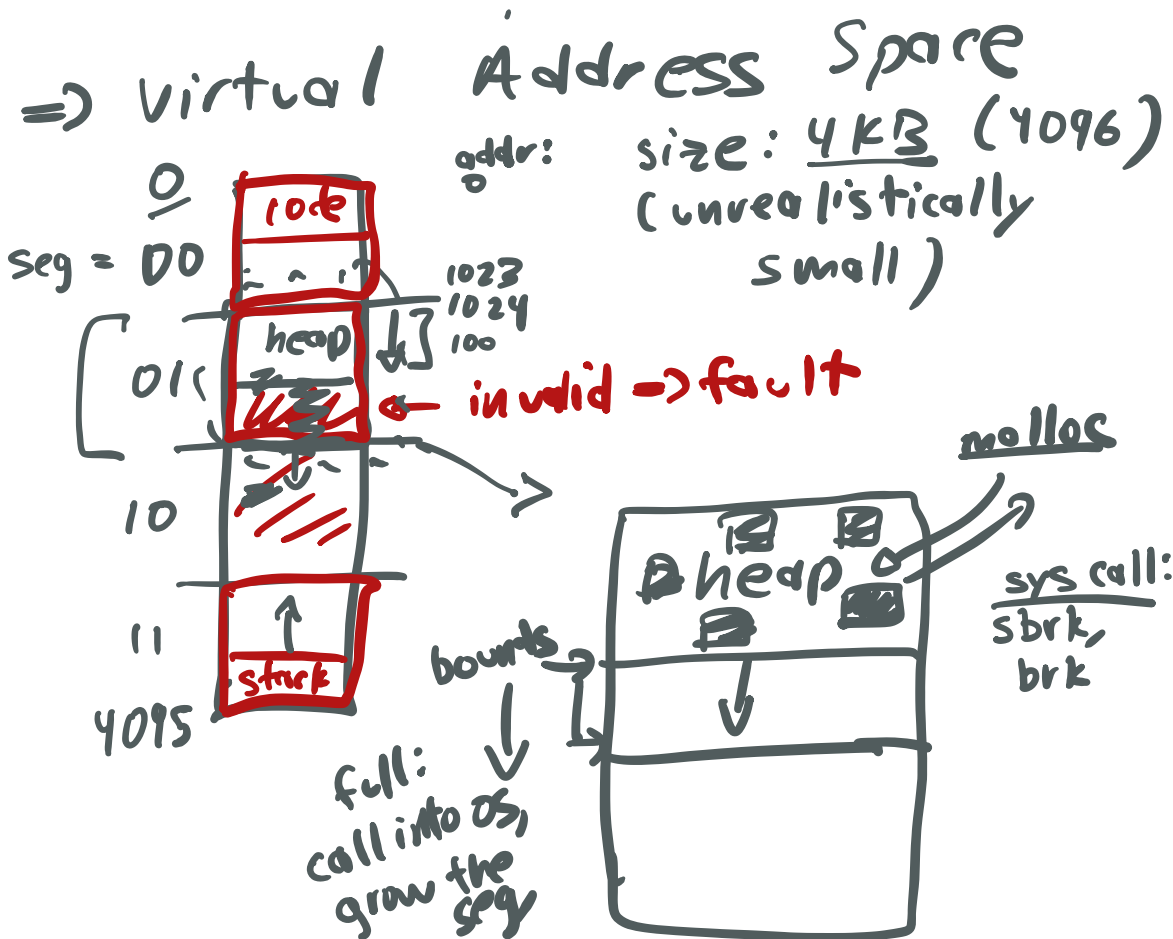 => Virtual Address Space
addr:
0
size: 4KB (4096)
(unrealistically
small)
0
code
seg = 00
1023
1024
heap
100
01
invalid => fault
malloc
10
heap
sys call:
sbrk,
brk
11
bounds
stack
4095
full:
call into OS,
grow the
seg